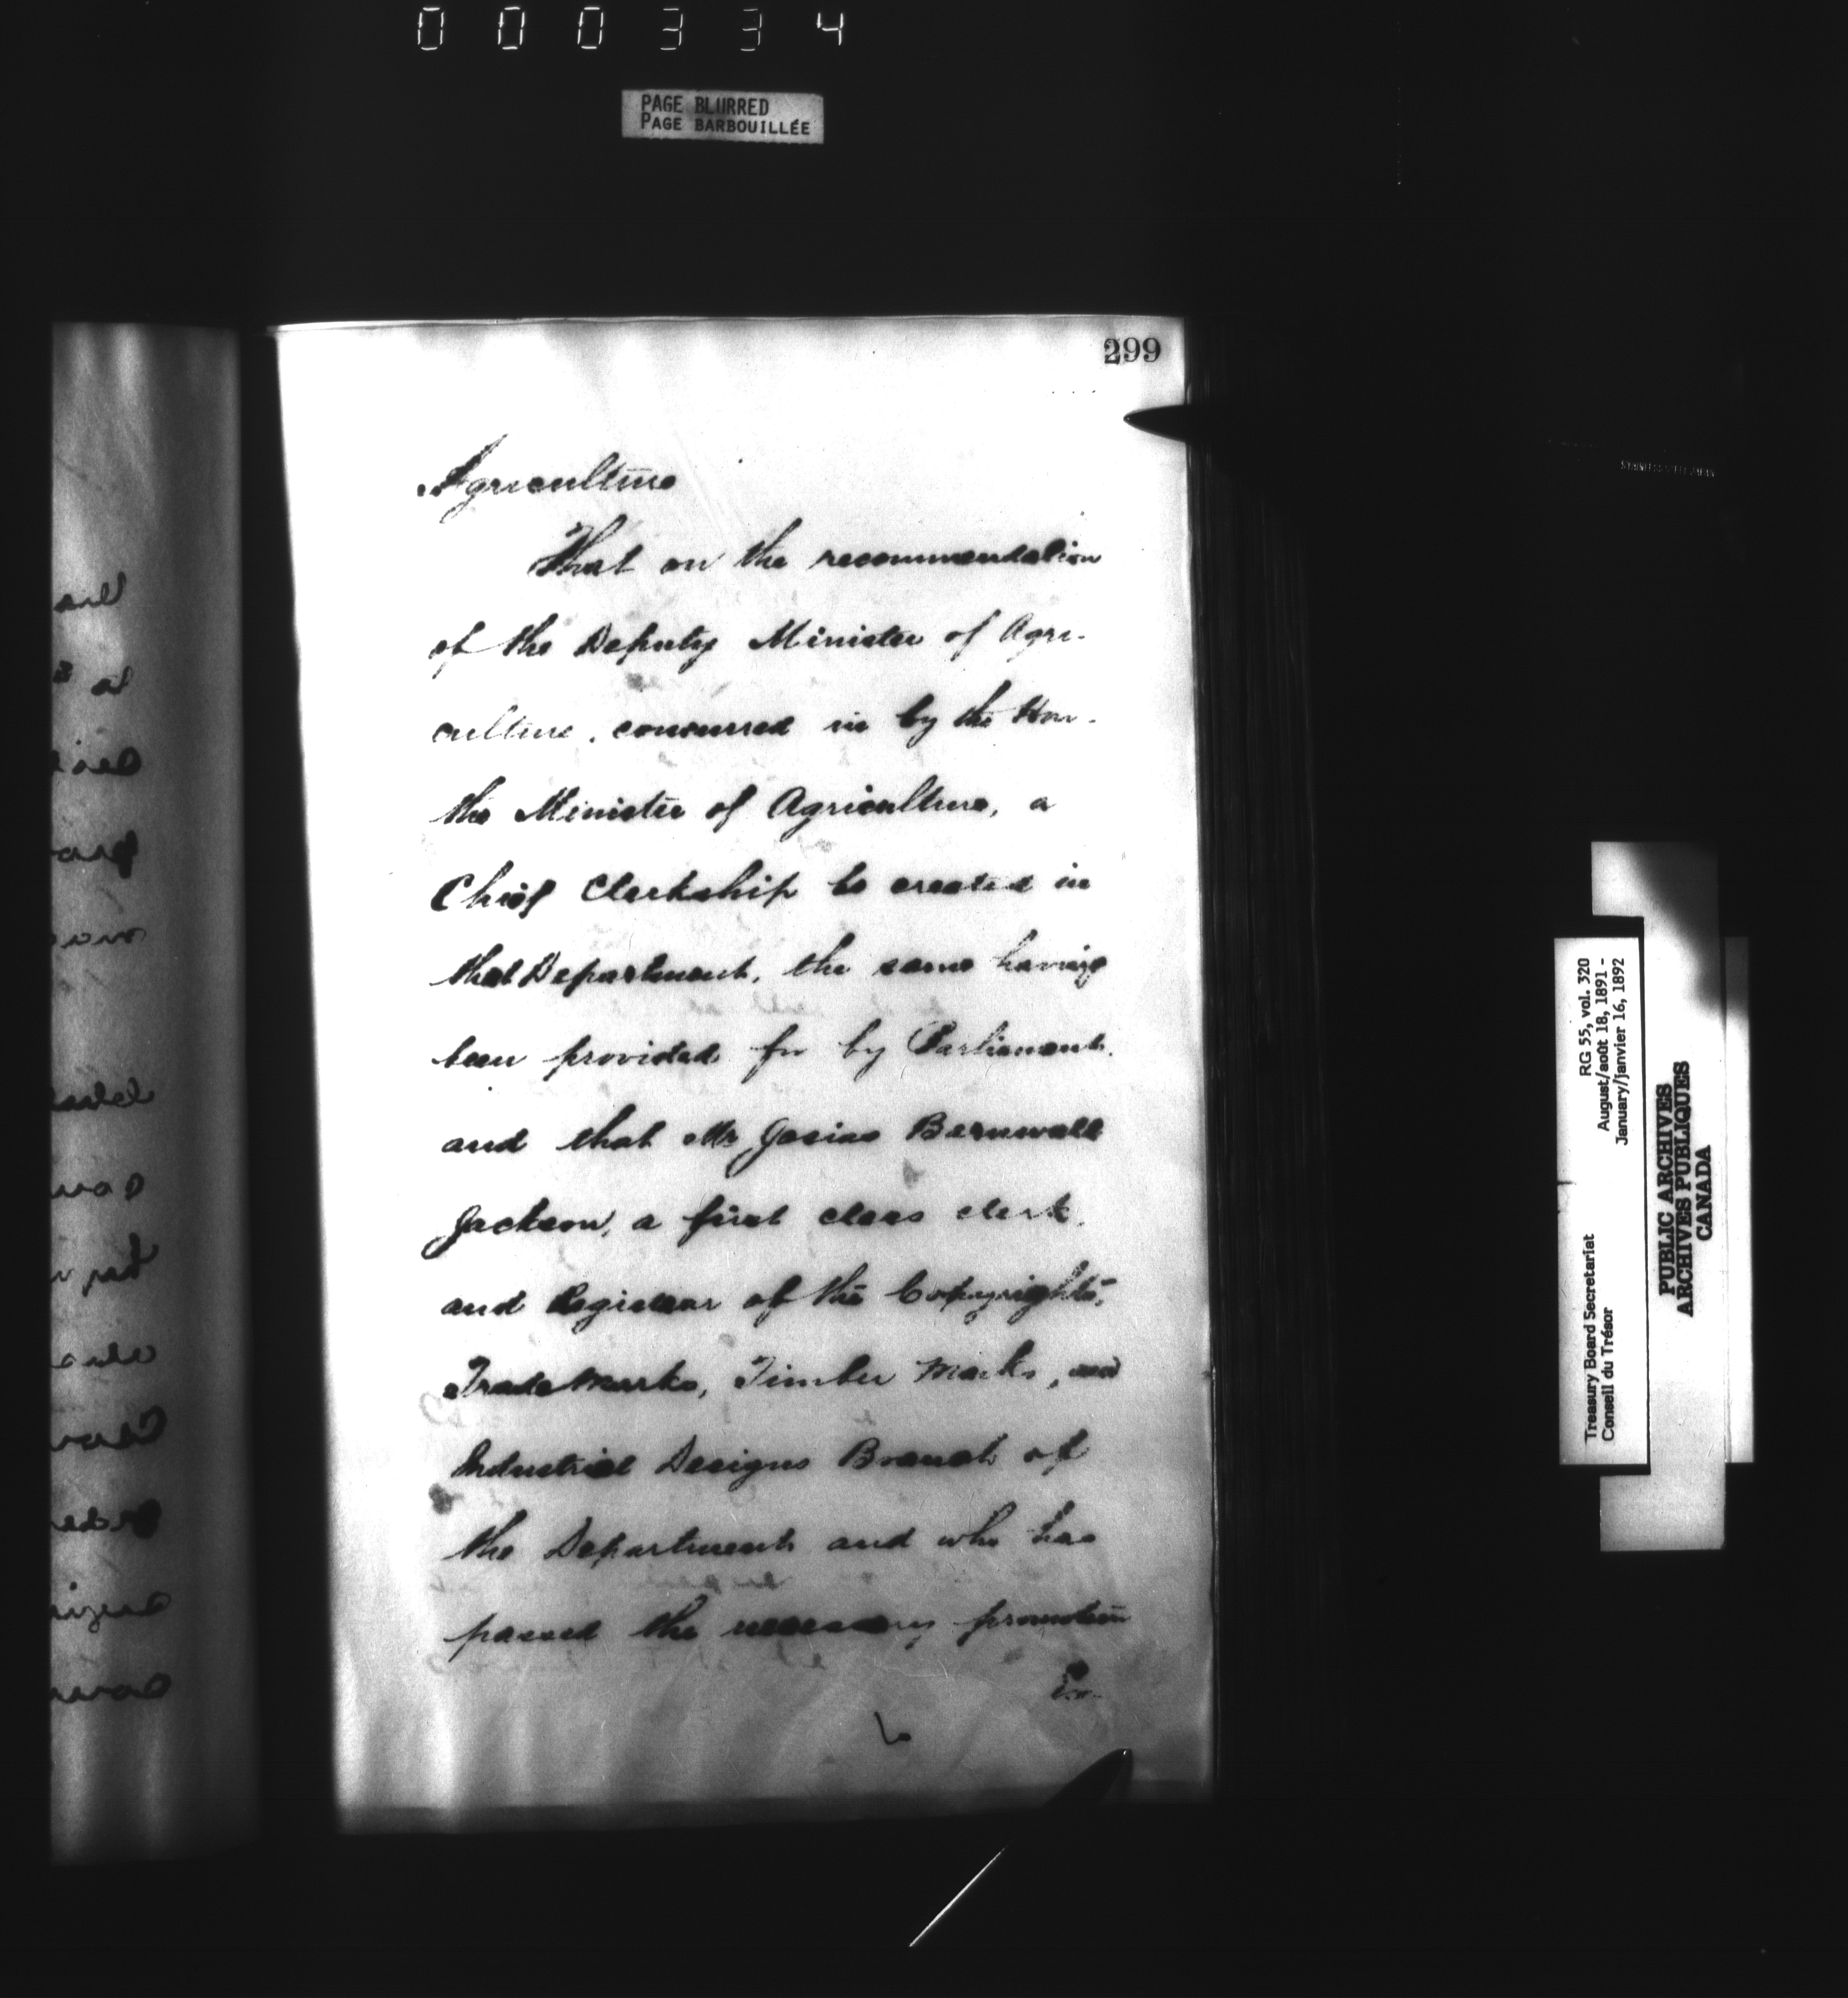 000334
PAGE BLURRED
PAGE BARBOUILLÉE
299
Agriculture
That on the recommendation
of the Deputy Minister of Agri-
culture, concurred in by the Hon.
the Minister of Agriculture, a
Chief Clerkship be created in
that Department, the same having
been provided for by Parliament,
and that Mr Josias Bernwall
Jackson, a first class clerk,
and Registrar of the Copyrights,
Trade Marks, Timber Marks, and
Industrial Designs Branch of
the Department and who has
passed the necessary promotion
Ex-
RG 55, vol. 320
August/août 18, 1891 -
January/janvier 16, 1892
Treasury Board Secretariat
Conseil du Trésor
PUBLIC ARCHIVES
ARCHIVES PUBLIQUES
CANADA